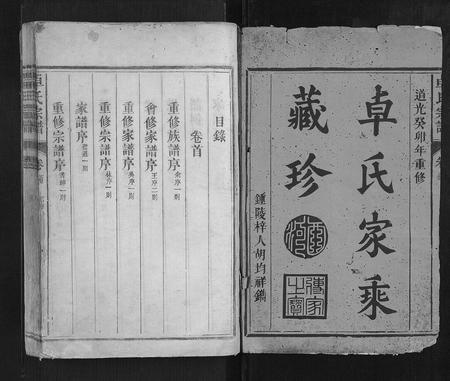 道光癸卯年重修
卓氏家乘
藏珍
傳家之寶
鍾陵梓人胡均祥鐫
卓氏宗譜
目錄
卷首
重修族譜序 余序一則
會修家譜序 王序二則
重修家譜序 吳序一則
重修宗譜序 林序一則
家譜序
重修宗譜序